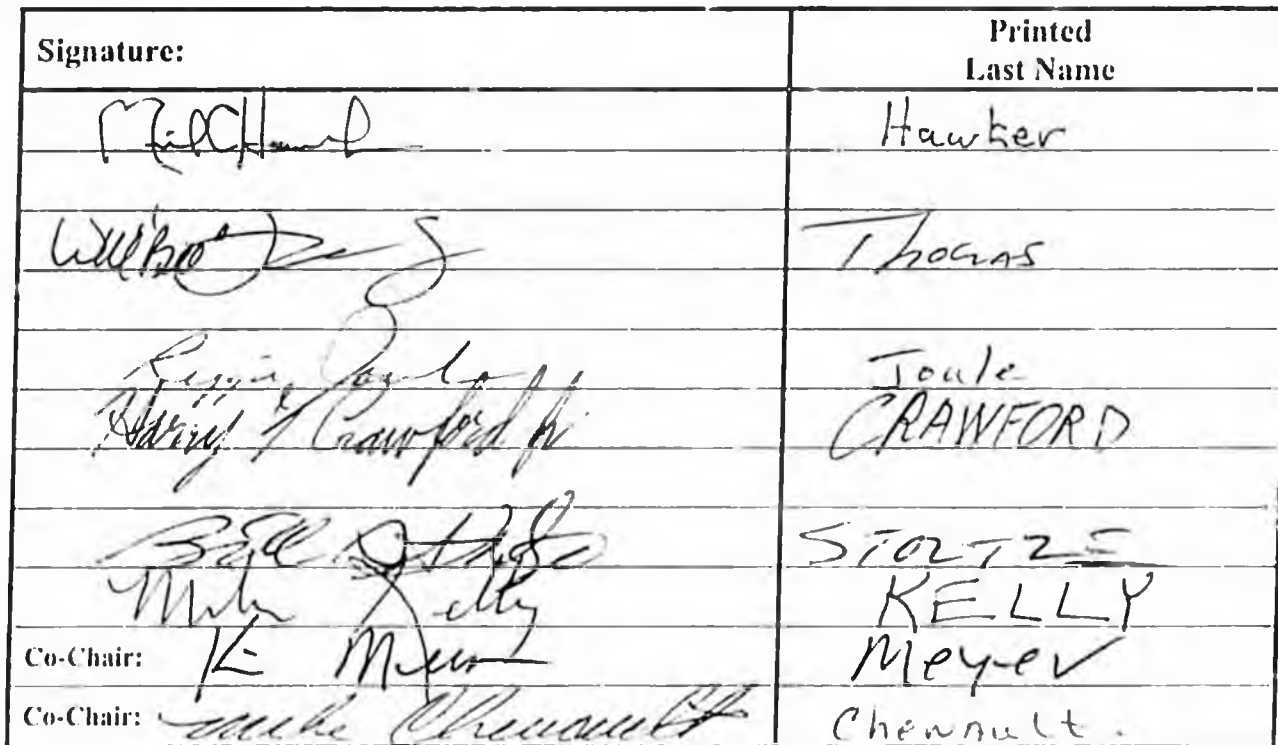 Signature: Printed
Last Name
Hawker
Thomas
Reggie Joule Joule
Harry T Crawford Jr CRAWFORD
Bill Stoltze STOLTZE
Mike Kelly KELLY
Co-Chair: K Meyer Meyer
Co-Chair: Mike Chenault Chenault